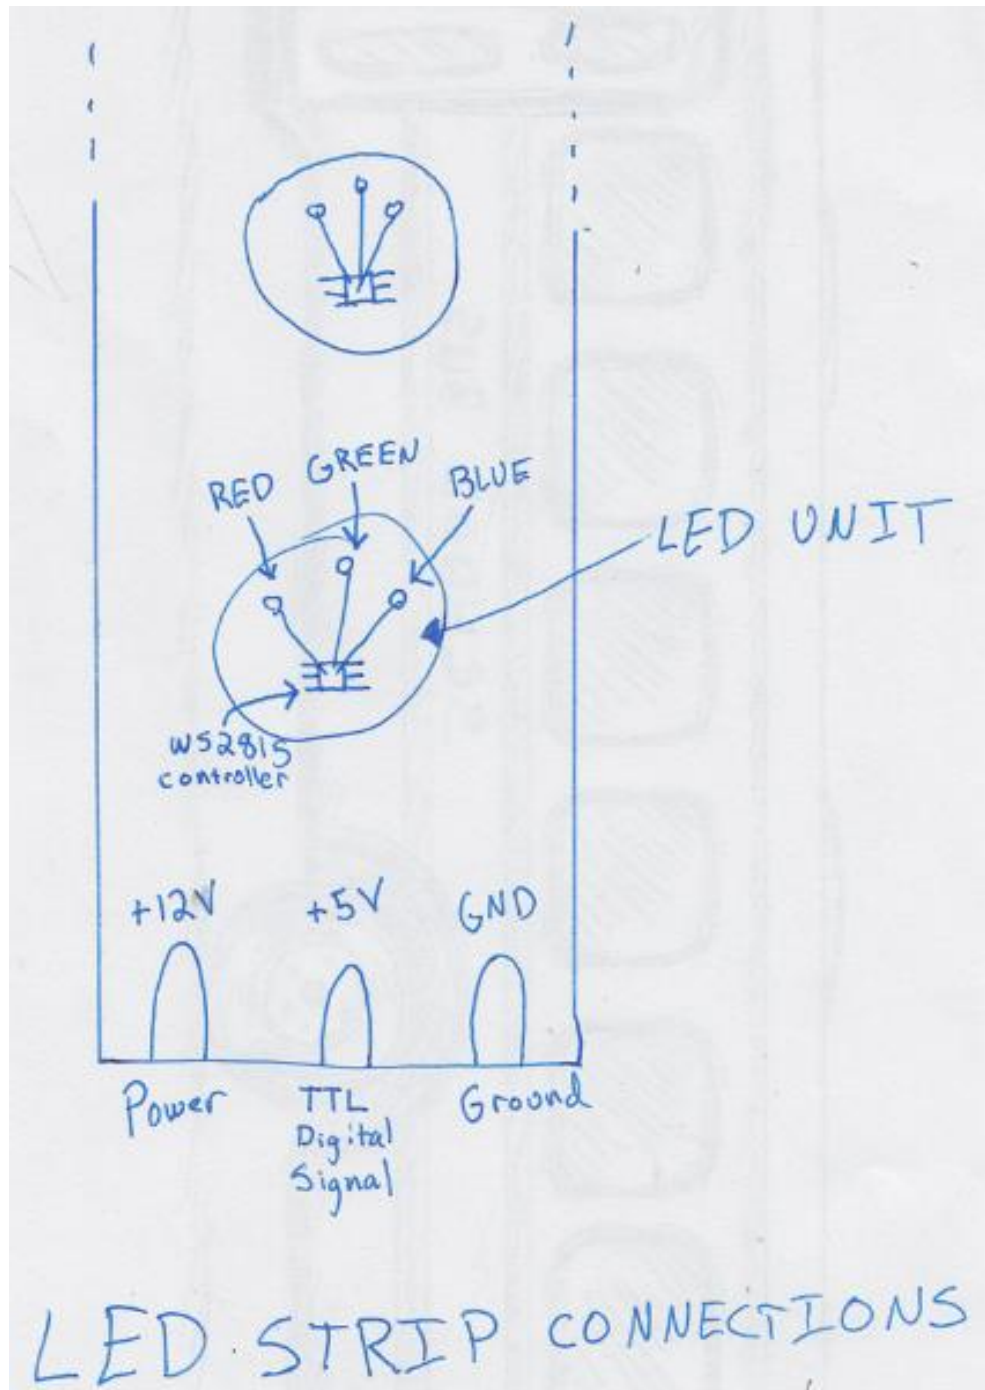 RED
GREEN
BLUE
LED UNIT
WS2815
controller
+12V
+5V
GND
Power
TTL
Digital
Signal
Ground
LED STRIP CONNECTIONS